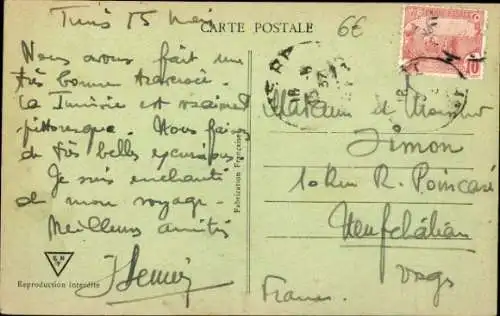 Tunis 15 Mai
CARTE POSTALE
6€
Nous avons fait une
très bonne traversée.
La Tunisie est vraiment
pittoresque. Nous faisons
de très belles excursions
Je suis enchanté
de mon voyage.
Meilleures amitiés
Reproduction interdite
Fabrication Française
10
Madame et Monsieur
Simon
R. Poincaré
Neufchâteau
Vosges
France